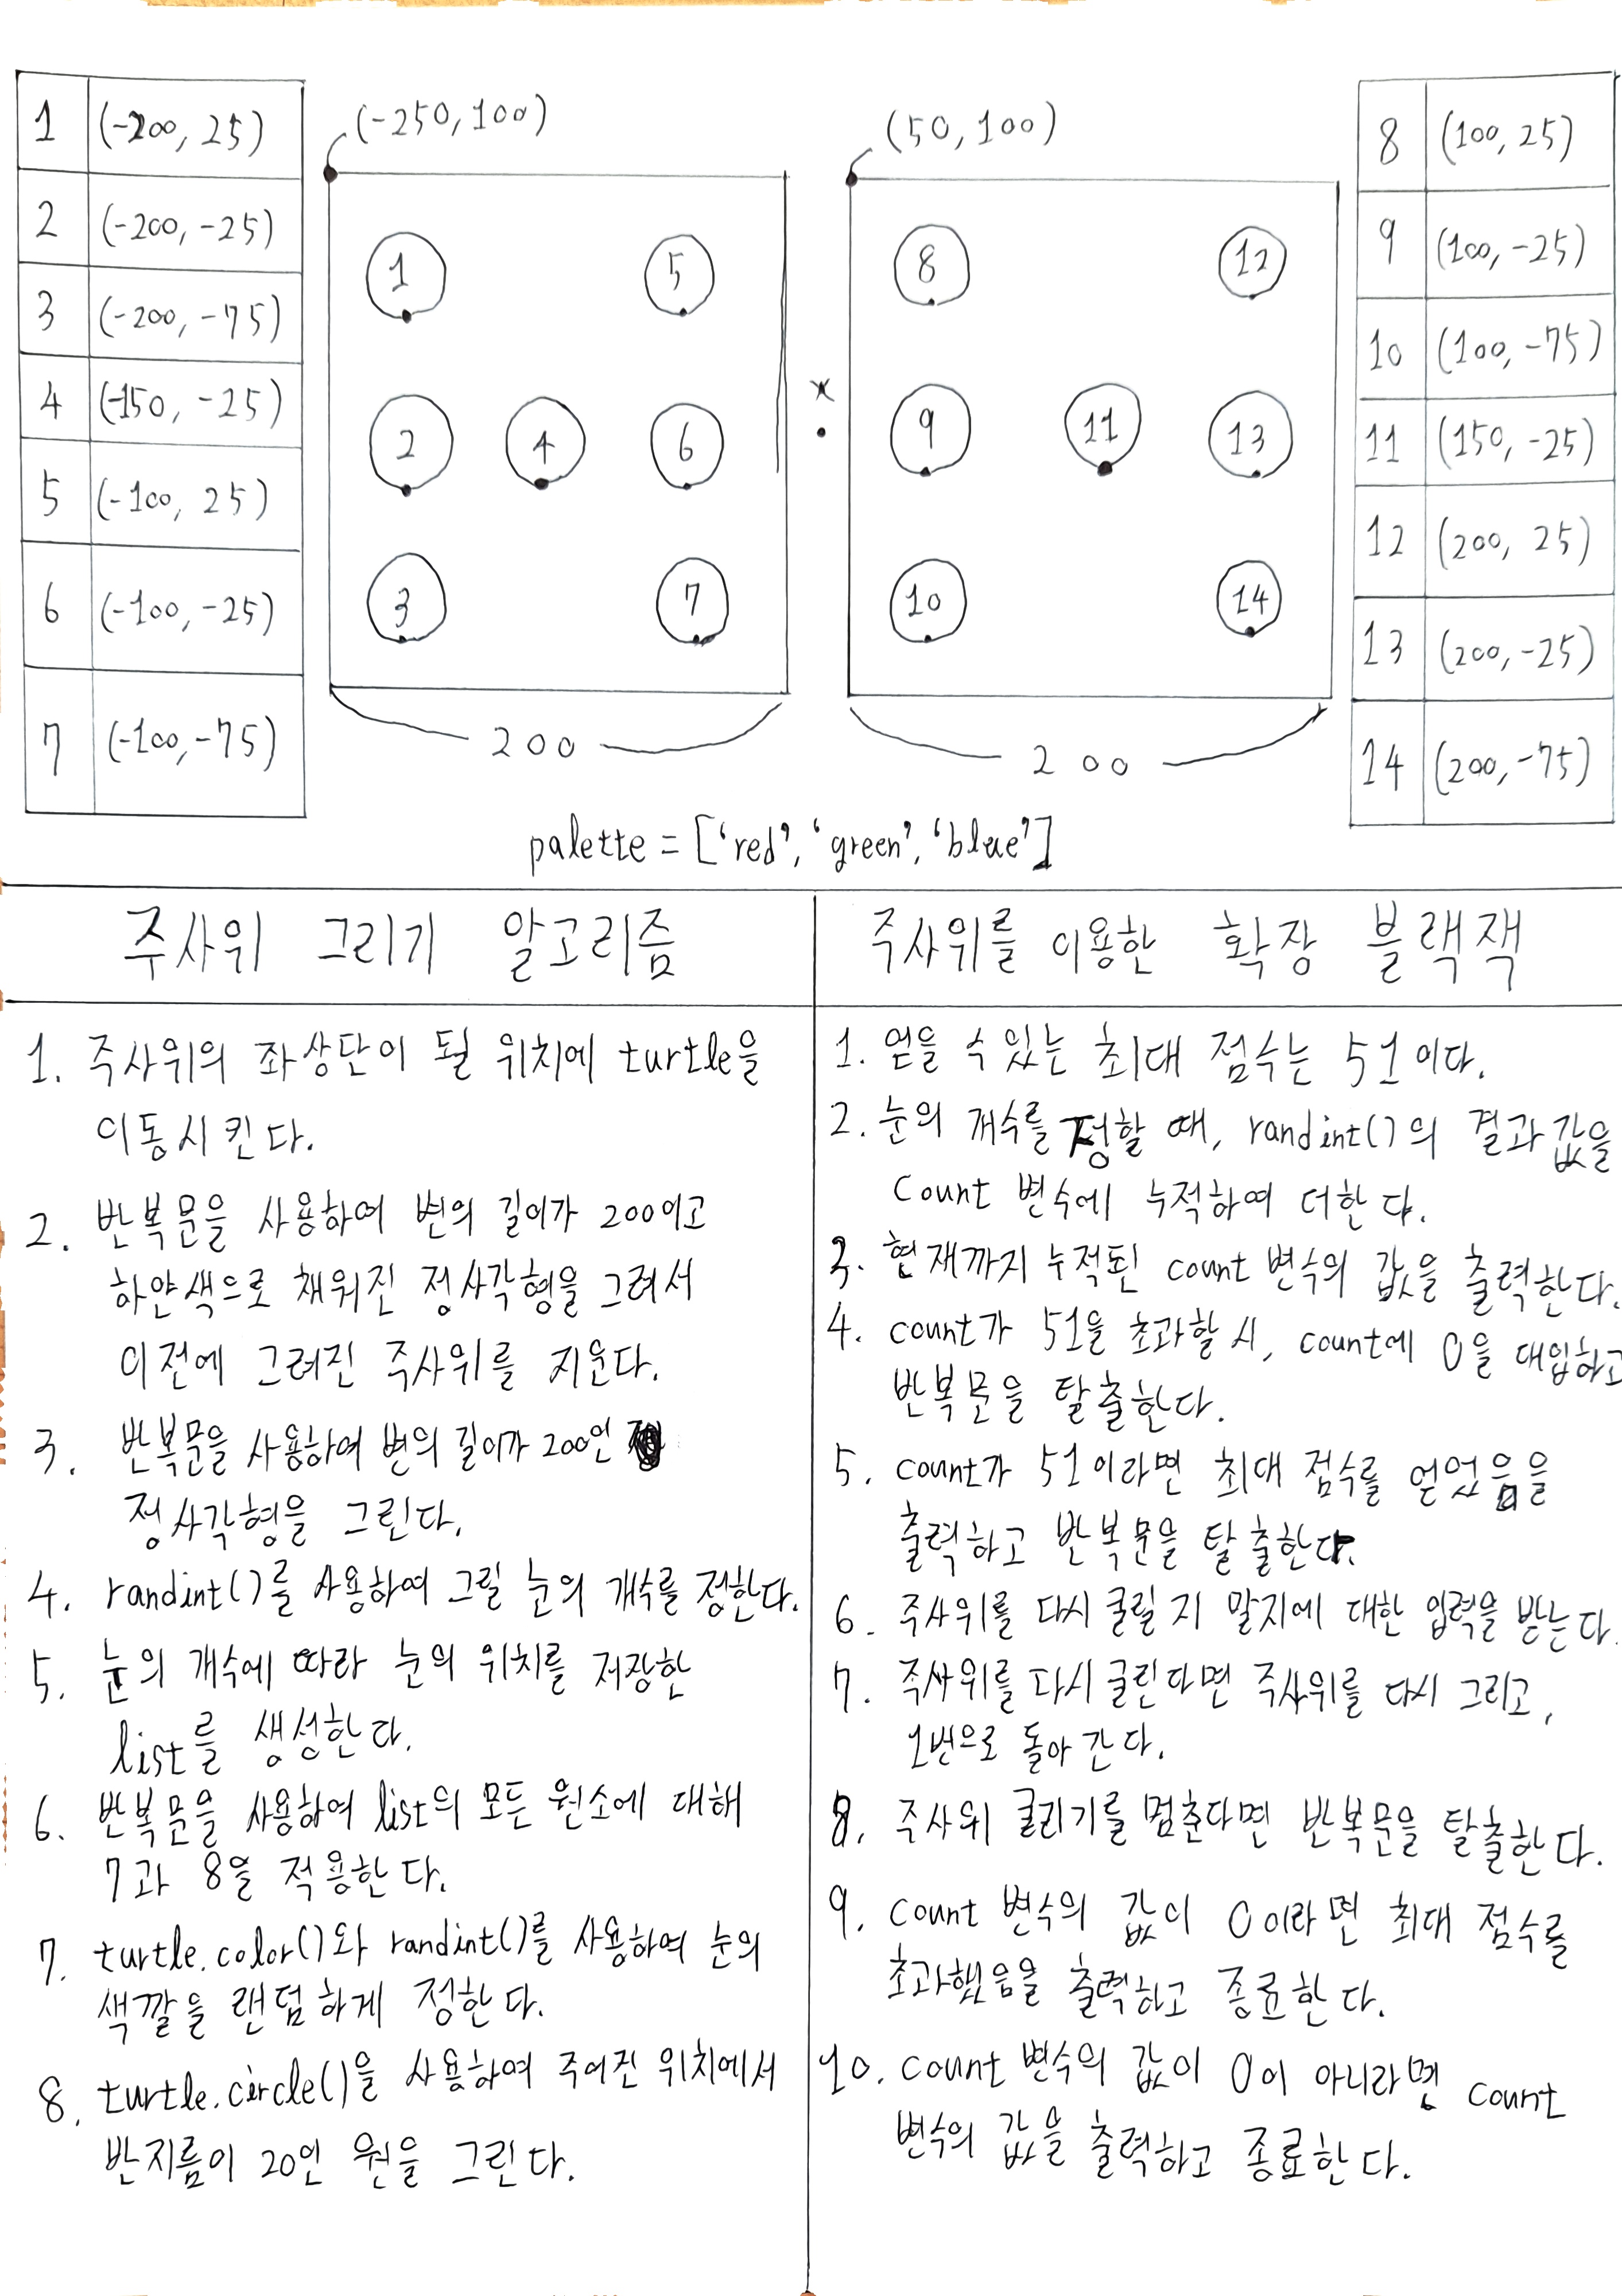 1 (-200, 25)
2 (-200, -25)
3 (-200, -75)
4 (-150, -25)
5 (-100, 25)
6 (-100, -25)
7 (-100, -75)
(-250, 100)
1 5
2 4 6
3 7
200
(50, 100)
8 12
9 11 13
10 14
200
8 (100, 25)
9 (100, -25)
10 (100, -75)
11 (150, -25)
12 (200, 25)
13 (200, -25)
14 (200, -75)
palette = ['red', 'green', 'blue']
주사위 그리기 알고리즘
1. 주사위의 좌상단이 될 위치에 turtle을
이동시킨다.
2. 반복문을 사용하여 변의 길이가 200이고
하얀색으로 채워진 정사각형을 그려서
이전에 그려진 주사위를 지운다.
3. 반복문을 사용하여 변의 길이가 200인
정사각형을 그린다.
4. randint()를 사용하여 그릴 눈의 개수를 정한다.
5. 눈의 개수에 따라 눈의 위치를 저장한
list를 생성한다.
6. 반복문을 사용하여 list의 모든 원소에 대해
7과 8을 적용한다.
7. turtle.color()와 randint()를 사용하여 눈의
색깔을 랜덤하게 정한다.
8. turtle.circle()을 사용하여 주어진 위치에서
반지름이 20인 원을 그린다.
주사위를 이용한 확장 블랙잭
1. 얻을 수 있는 최대 점수는 51이다.
2. 눈의 개수를 정할 때, randint()의 결과값을
count 변수에 누적하여 더한다.
3. 현재까지 누적된 count 변수의 값을 출력한다.
4. count가 51을 초과할 시, count에 0을 대입하고
반복문을 탈출한다.
5. count가 51이라면 최대 점수를 얻었음을
출력하고 반복문을 탈출한다.
6. 주사위를 다시 굴릴 지 말지에 대한 입력을 받는다.
7. 주사위를 다시 굴린다면 주사위를 다시 그리고,
1번으로 돌아 간다.
8. 주사위 굴리기를 멈춘다면 반복문을 탈출한다.
9. count 변수의 값이 0이라면 최대 점수를
초과했음을 출력하고 종료한다.
10. count 변수의 값이 0이 아니라면 count
변수의 값을 출력하고 종료한다.